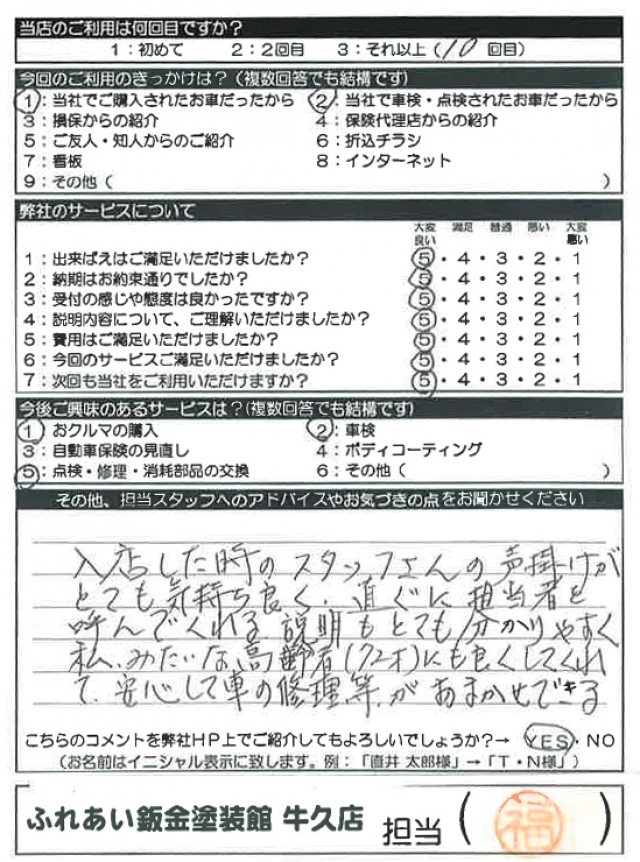 当店のご利用は何回目ですか?
1:初めて 2:2回目 3:それ以上(10 回目)
今回のご利用のきっかけは?(複数回答でも結構です)
1:当社でご購入されたお車だったから 2:当社で車検・点検されたお車だったから
3:損保からの紹介 4:保険代理店からの紹介
5:ご友人・知人からのご紹介 6:折込チラシ
7:看板 8:インターネット
9:その他( )
弊社のサービスについて
大変良い 満足 普通 悪い 大変悪い
1:出来ばえはご満足いただけましたか? 5・4・3・2・1
2:納期はお約束通りでしたか? 5・4・3・2・1
3:受付の感じや態度は良かったですか? 5・4・3・2・1
4:説明内容について、ご理解いただけましたか? 5・4・3・2・1
5:費用はご満足いただけましたか? 5・4・3・2・1
6:今回のサービスご満足いただけましたか? 5・4・3・2・1
7:次回も当社をご利用いただけますか? 5・4・3・2・1
今後ご興味のあるサービスは?(複数回答でも結構です)
1:おクルマの購入 2:車検
3:自動車保険の見直し 4:ボディコーティング
5:点検・修理・消耗部品の交換 6:その他( )
その他、担当スタッフへのアドバイスやお気づきの点をお聞かせください
入店した時のスタッフさんの声掛けが
とても気持ち良く、直ぐに担当者を
呼んでくれる 説明もとても分かりやすく
私、みたいな高齢者(72才)にも良くしてくれ
て、安心して車の修理、等、がおまかせできる
こちらのコメントを弊社HP上でご紹介してもよろしいでしょうか?→ YES・NO
(お名前はイニシャル表示に致します。例:「直井 太郎様」→「T・N様」)
ふれあい鈑金塗装館 牛久店 担当(福)